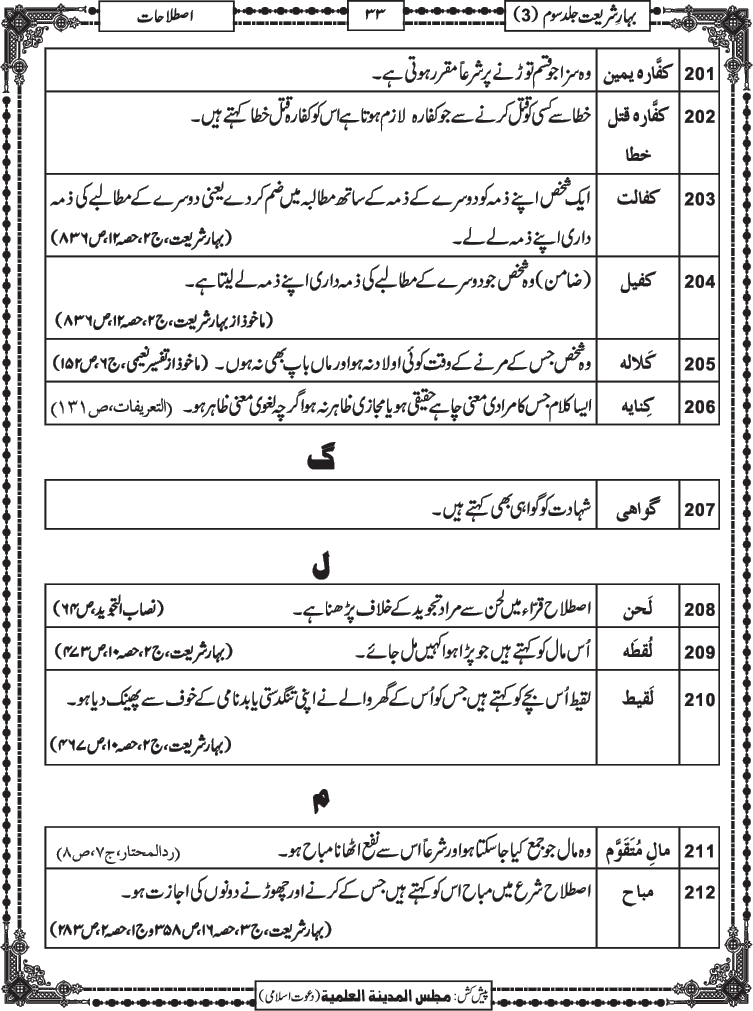 بہارِ شریعت جلد سوم (3)
۳۳
اصطلاحات
201 کفَّارہ یمین وہ سزا جو قسم توڑنے پر شرعاً مقرر ہوتی ہے۔
202 کفَّارہ قتل خطا سے کسی کو قتل کرنے سے جو کفارہ لازم ہوتا ہے اس کو کفارہ قتل خطا کہتے ہیں۔
خطا
203 کفالت ایک شخص اپنے ذمہ کو دوسرے کے ذمہ کے ساتھ مطالبہ میں ضم کردے یعنی دوسرے کے مطالبے کی ذمہ
داری اپنے ذمہ لے لے۔ (بہارشریعت، ج۲، حصہ۱۲، ص۸۳۶)
204 کفیل (ضامن) وہ شخص جو دوسرے کے مطالبے کی ذمہ داری اپنے ذمہ لے لیتا ہے۔
(ماخوذ از بہارشریعت، ج۲، حصہ۱۲، ص۸۳۶)
205 کَلالہ وہ شخص جس کے مرنے کے وقت کوئی اولاد نہ ہو اور ماں باپ بھی نہ ہوں۔ (ماخوذ از تفسیر نعیمی، ج۶، ص۱۵۲)
206 کِنایہ ایسا کلام جس کا مرادی معنی چاہے حقیقی ہو یا مجازی ظاہر نہ ہو اگرچہ لغوی معنی ظاہر ہو۔ (التعریفات، ص۱۳۱)
گ
207 گواھی شہادت کو گواہی بھی کہتے ہیں۔
ل
208 لَحن اصطلاح قرّاء میں لحن سے مراد تجوید کے خلاف پڑھنا ہے۔ (نصاب التجوید، ص۶۴)
209 لُقطَہ اُس مال کو کہتے ہیں جو پڑا ہوا کہیں مل جائے۔ (بہارشریعت، ج۲، حصہ۱۰، ص۴۷۳)
210 لَقیط لقیط اُس بچے کو کہتے ہیں جس کو اُس کے گھر والے نے اپنی تنگدستی یا بدنامی کے خوف سے پھینک دیا ہو۔
(بہارشریعت، ج۲، حصہ۱۰، ص۴۶۷)
م
211 مالِ مُتَقَوَّم وہ مال جو جمع کیا جاسکتا ہو اور شرعاً اس سے نفع اٹھانا مباح ہو۔ (ردالمحتار، ج۷، ص۸)
212 مباح اصطلاح شرع میں مباح اس کو کہتے ہیں جس کے کرنے اور چھوڑنے دونوں کی اجازت ہو۔
(بہارشریعت، ج۳، حصہ۱۶، ص۳۵۸ و ج۱، حصہ۲، ص۲۸۳)
پیش کش: مجلس المدینة العلمیة (دعوت اسلامی)